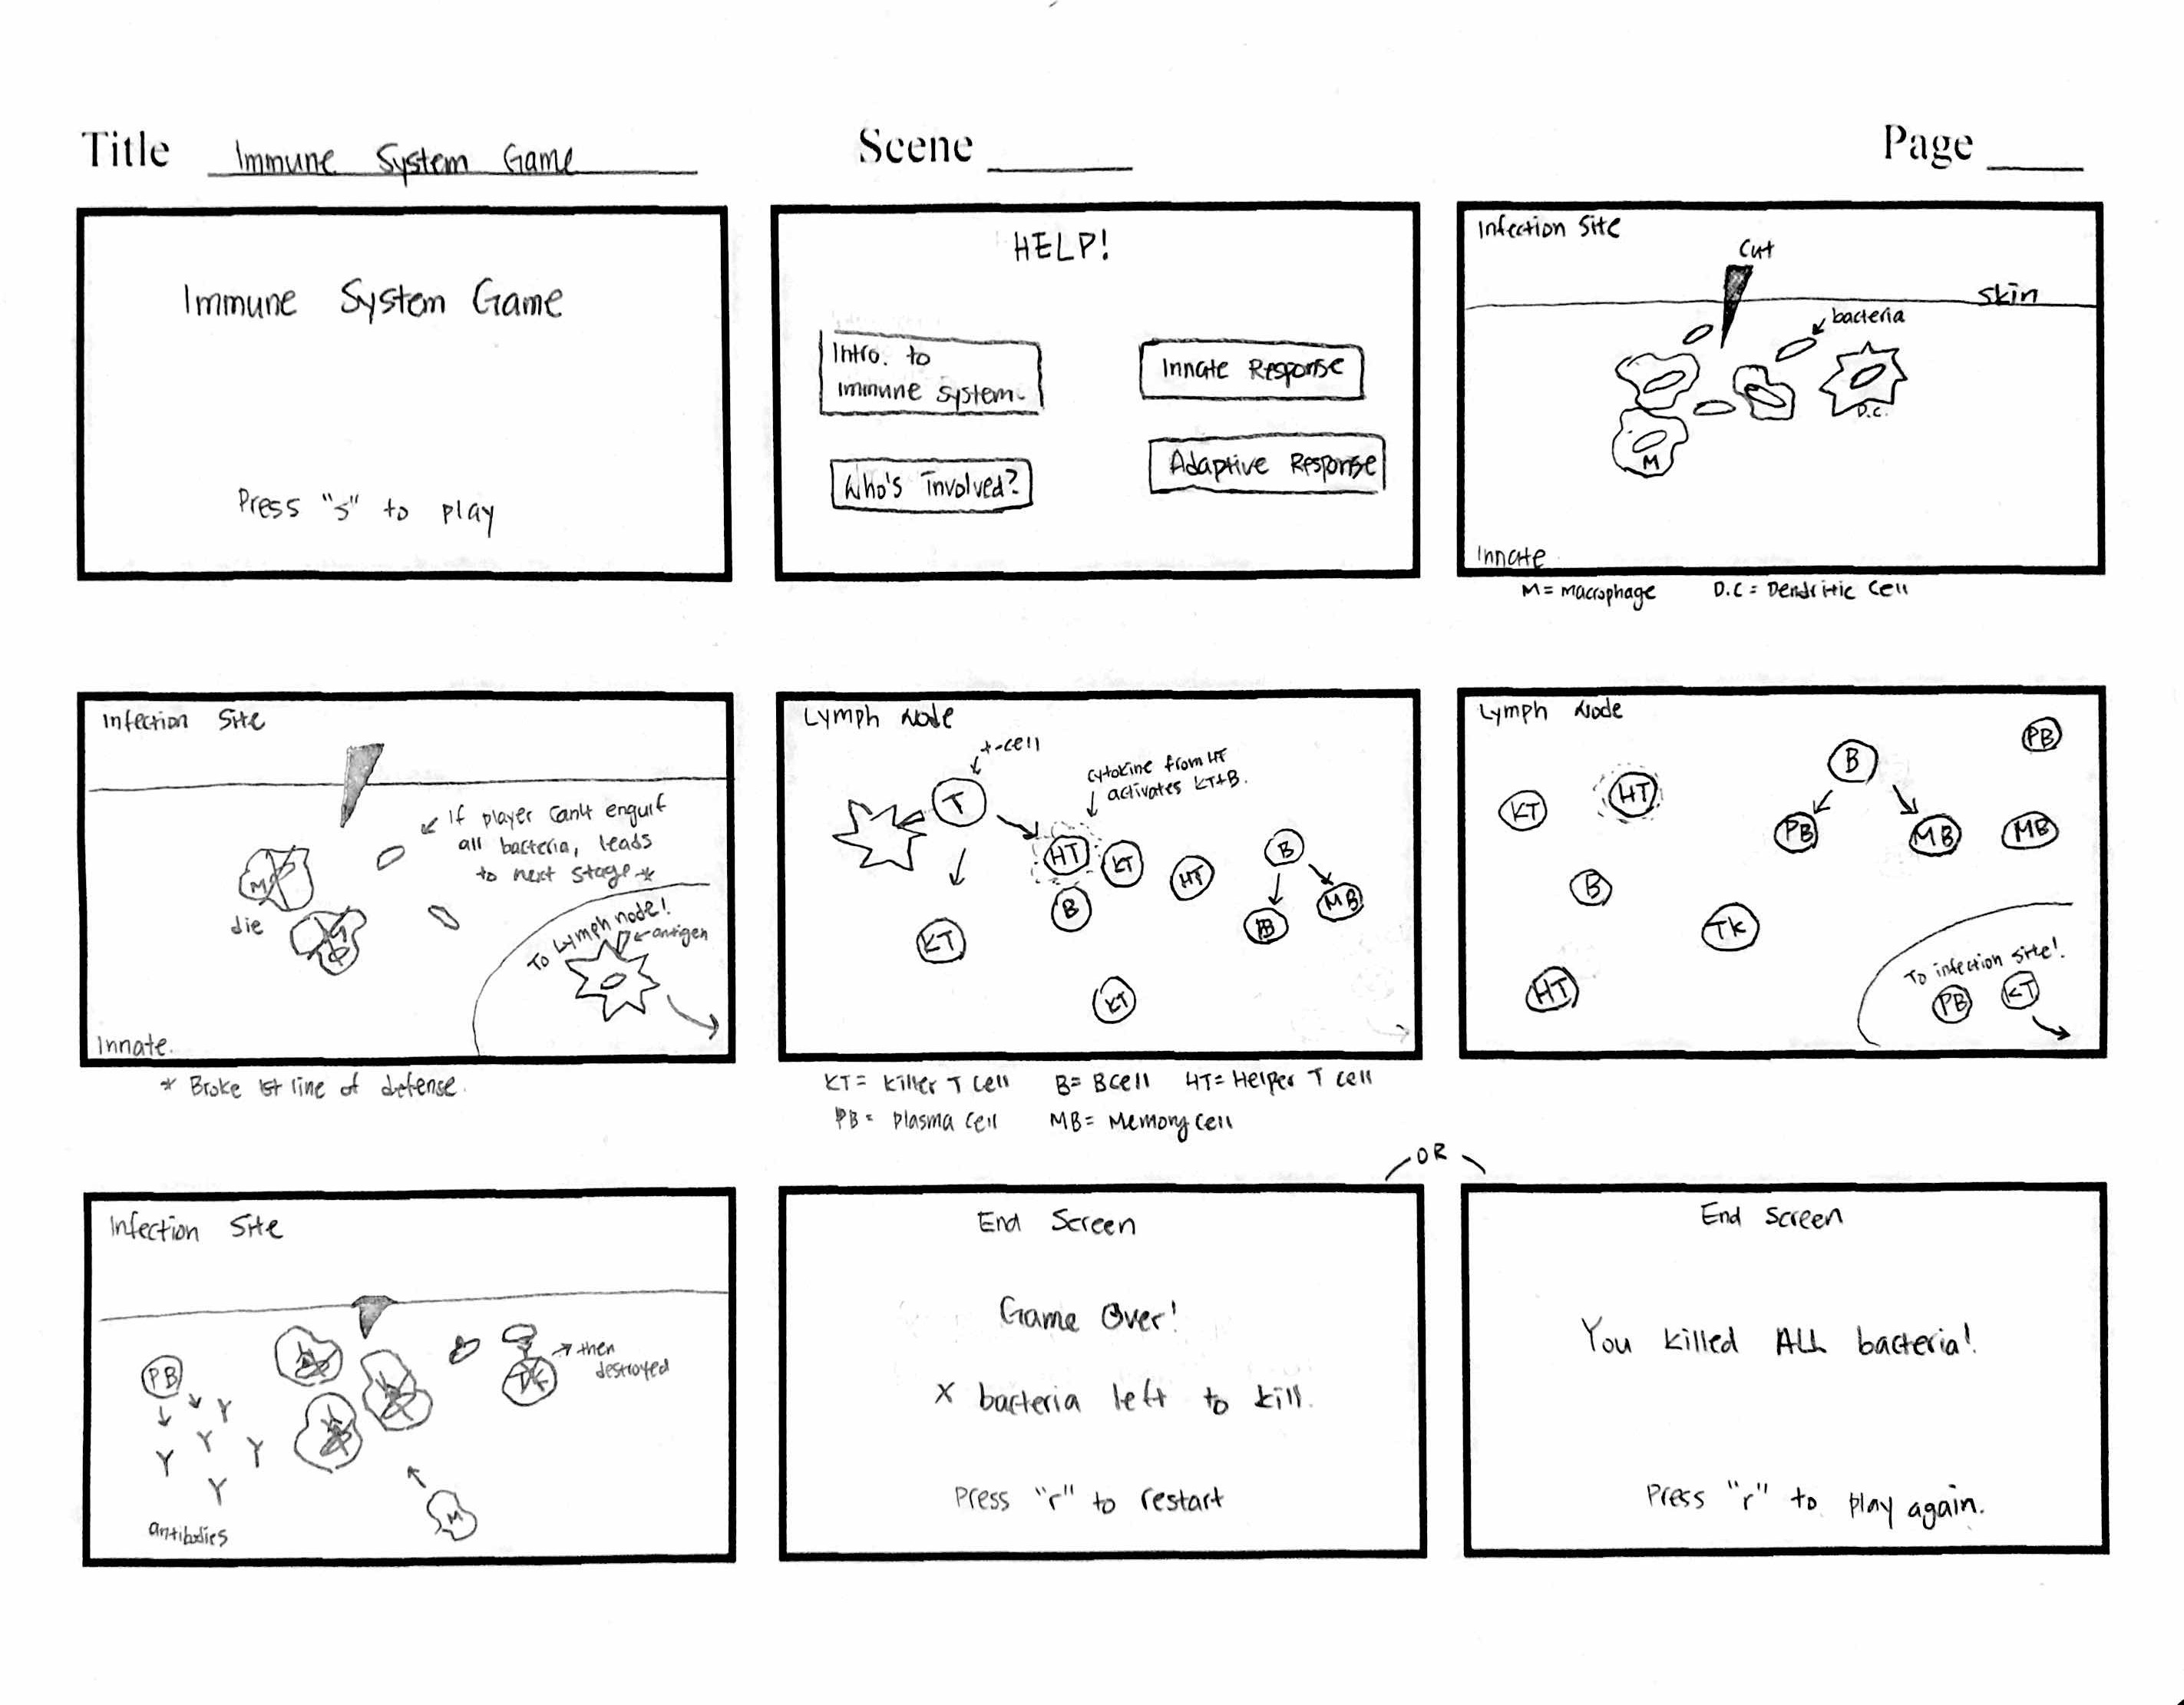 Title Immune System Game Scene Page
Immune System Game
Press "s" to play
HELP!
Intro. to
immune system.
Innate Response
Who's involved?
Adaptive Response
Infection Site
Cut
skin
bacteria
D.C.
M
Innate
M= macrophage D.C = Dendritic Cell
Infection Site
If player can't engulf
all bacteria, leads
to next stage *
M
die
To Lymph node!
antigen
Innate.
* Broke 1st line of defense.
Lymph Node
t-cell
T
cytokine from HT
activates KT+B.
HT
KT
HT
B
B
PB
MB
KT
KT
KT = Killer T Cell B= B cell HT= Helper T cell
PB = Plasma Cell MB= Memory Cell
Lymph Node
PB
B
KT
HT
PB
MB
MB
B
TK
HT
To infection site!
PB
KT
OR
Infection Site
PB
Y
Y
Y
Y
Y
then
destroyed
TK
M
antibodies
End Screen
Game Over!
X bacteria left to kill.
Press "r" to restart
End Screen
You killed ALL bacteria!
Press "r" to play again.